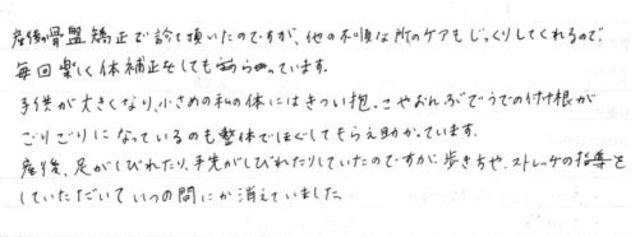 産後骨盤矯正で診て頂いたのですが、他の不順な所のケアもじっくりしてくれるので、
毎回楽しく体補正をしてもらっています。
子供が大きくなり、小さめの私の体にはきつい抱っこやおんぶでうでの付け根が
ごりごりになっているのも整体でほぐしてもらえ助かっています。
産後、足がしびれたり、手先がしびれたりしていたのですが、歩き方や、ストレッチの指導を
していただいていつの間にか消えていました。